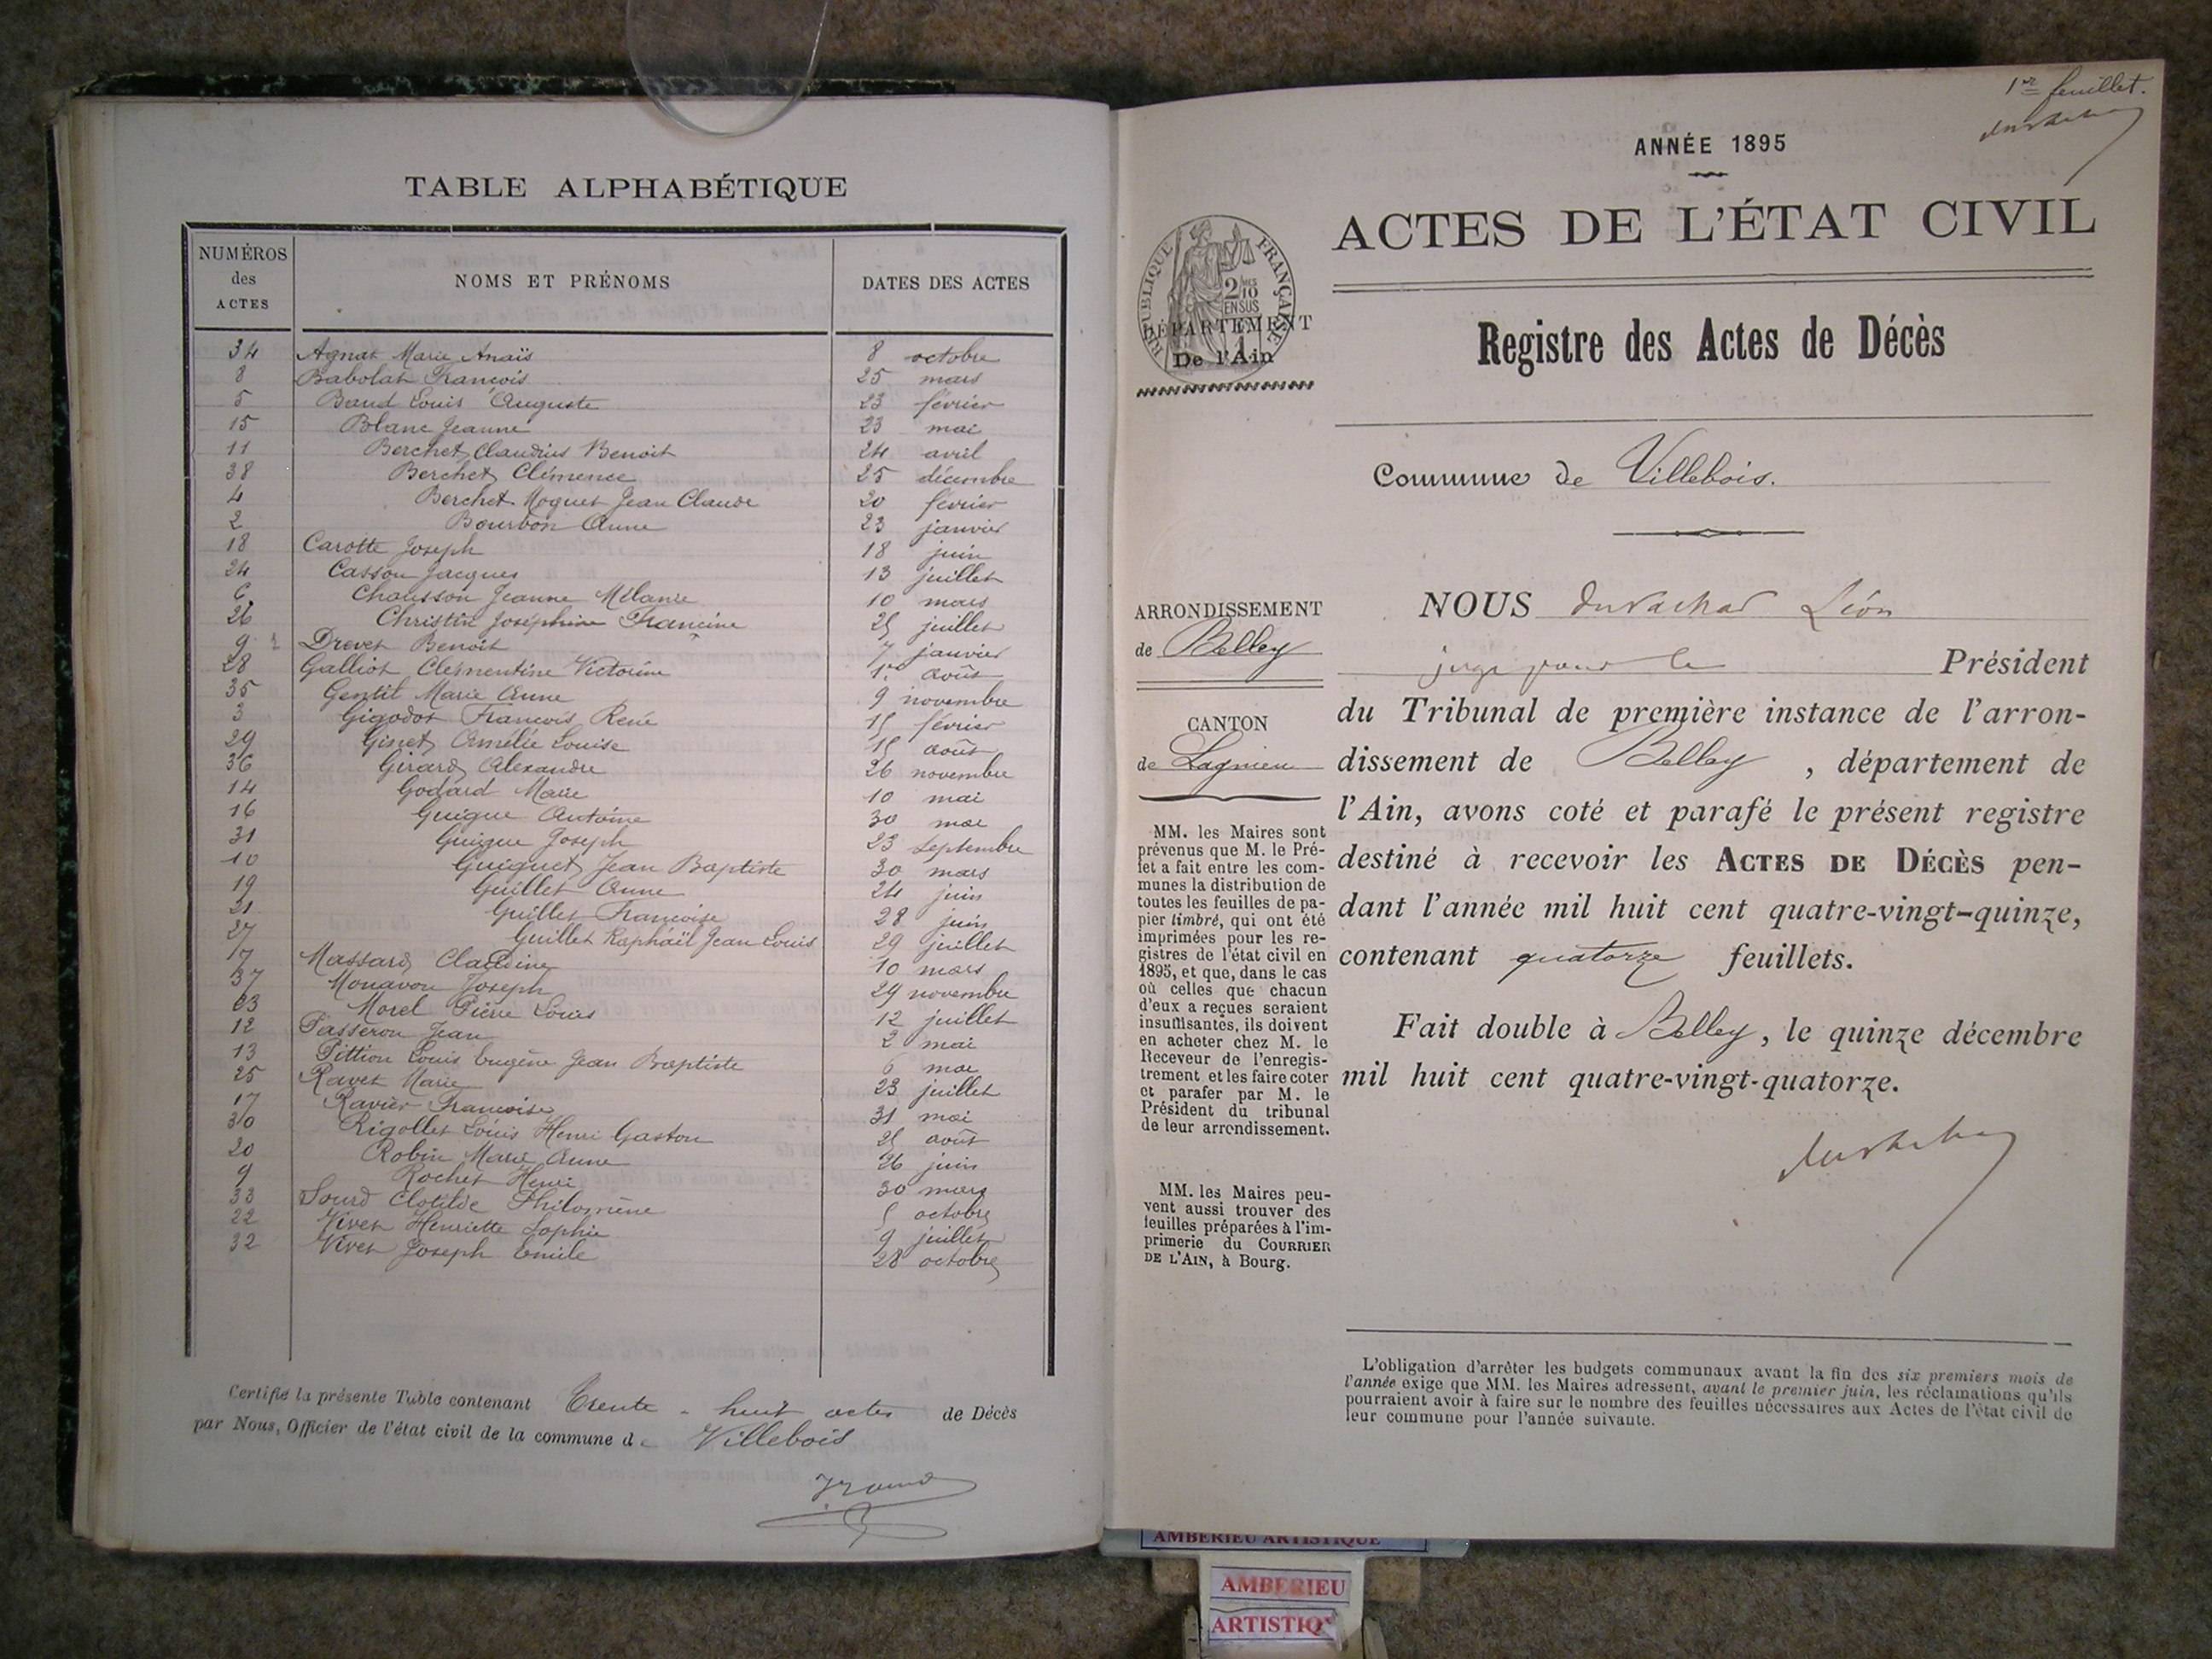 TABLE ALPHABÉTIQUE
NUMÉROS des ACTES NOMS ET PRÉNOMS DATES DES ACTES
34 Agnat Marie Anaïs 8 octobre
8 Babolat François 25 mars
5 Baud Louis Auguste 23 février
15 Blanc Jeanne 23 mai
11 Berchet Claudius Benoit 24 avril
38 Berchet Clémence 25 décembre
4 Berchet Moguet Jean Claude 20 février
2 Bourbon Anne 23 janvier
18 Carotte Joseph 18 juin
24 Casson Jacques 13 juillet
6 Chausson Jeanne Mélanie 10 mars
26 Christin Joséphine Francine 25 juillet
Drevet Benoit 7 janvier
28 Galliot Clémentine Victorine 1er août
35 Gentil Marie Anne 9 novembre
3 Gigodot François René 15 février
29 Ginet Amélie Louise 15 août
36 Girard Alexandre 26 novembre
14 Godard Marie 10 mai
16 Guigue Antoine 30 mai
31 Guigue Joseph 23 septembre
10 Guiguet Jean Baptiste 30 mars
19 Guillet Anne 24 juin
21 Guillet Françoise 28 juin
27 Guillet Raphaël Jean Louis 29 juillet
Massard Claudine 10 mars
37 Monavon Joseph 29 novembre
23 Morel Pierre Louis 12 juillet
12 Passeron Jean 2 mai
13 Pittion Louis Eugène Jean Baptiste 6 mai
25 Ravet Marie 23 juillet
17 Ravier Françoise 31 mai
30 Rigollet Louis Henri Gaston 25 août
20 Robin Marie Anne 26 juin
9 Rochet Henri 30 mars
33 Sourd Clotilde Philomène 5 octobre
22 Vivet Henriette Sophie 9 juillet
32 Vivet Joseph Emile 28 octobre
Certifié la présente Table contenant Trente-huit actes de Décès
par Nous, Officier de l'état civil de la commune de Villebois
1er feuillet.
ANNÉE 1895
ACTES DE L'ÉTAT CIVIL
RÉPUBLIQUE FRANÇAISE
2/10
EN SUS
DÉPARTEMENT
De l'Ain
Registre des Actes de Décès
Commune de Villebois.
ARRONDISSEMENT
de Belley
CANTON
de Lagnieu
MM. les Maires sont
prévenus que M. le Pré-
fet a fait entre les com-
munes la distribution de
toutes les feuilles de pa-
pier timbré, qui ont été
imprimées pour les re-
gistres de l'état civil en
1895, et que, dans le cas
où celles que chacun
d'eux a reçues seraient
insuffisantes, ils doivent
en acheter chez M. le
Receveur de l'enregis-
trement et les faire coter
et parafer par M. le
Président du tribunal
de leur arrondissement.
MM. les Maires peu-
vent aussi trouver des
feuilles préparées à l'im-
primerie du COURRIER
DE L'AIN, à Bourg.
NOUS Léon
juge pour le Président
du Tribunal de première instance de l'arron-
dissement de Belley, département de
l'Ain, avons coté et parafé le présent registre
destiné à recevoir les ACTES DE DÉCÈS pen-
dant l'année mil huit cent quatre-vingt-quinze,
contenant quatorze feuillets.
Fait double à Belley, le quinze décembre
mil huit cent quatre-vingt-quatorze.
L'obligation d'arrêter les budgets communaux avant la fin des six premiers mois de
l'année exige que MM. les Maires adressent, avant le premier juin, les réclamations qu'ils
pourraient avoir à faire sur le nombre des feuilles nécessaires aux Actes de l'état civil de
leur commune pour l'année suivante.
AMBERIEU ARTISTIQUE
AMBERIEU
ARTISTIQ